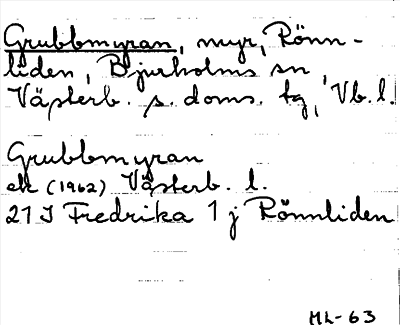 Grubbmyran, myr, Rönn-
liden, Bjurholms sn,
Västerb. s. doms. tg, Vb. l.
Grubbmyran
ek (1962) Västerb. l.
21 J Fredrika 1 j Rönnliden
ML-63